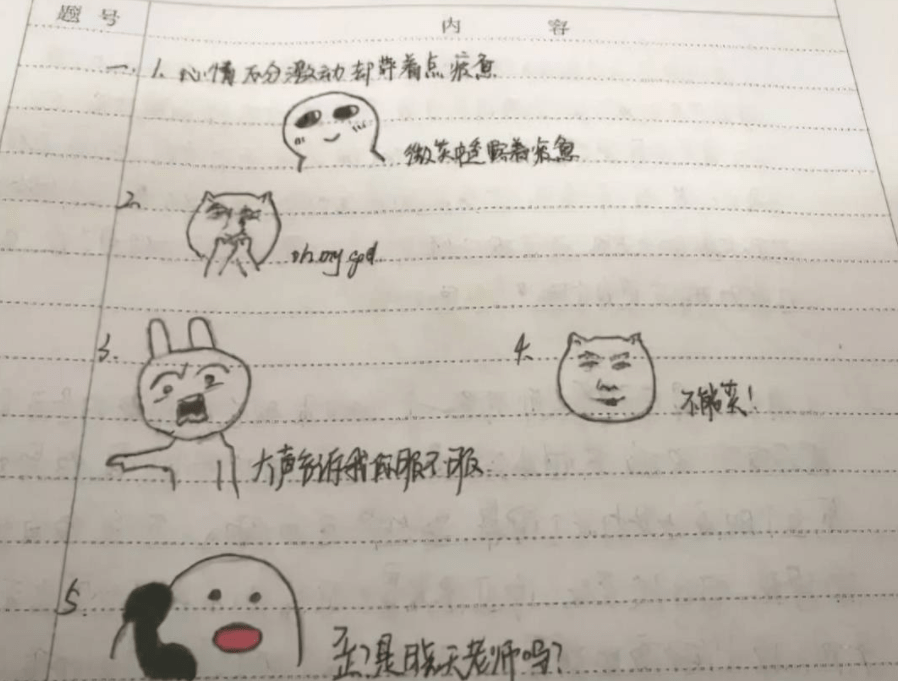 题号 内容
一、1. 心情不分激动却带着点疲惫
微笑中透露着疲惫
2.
oh my god.
3.
4.
不能笑！
大声告诉我你服不服
5.
歪？是聊天老师吗？